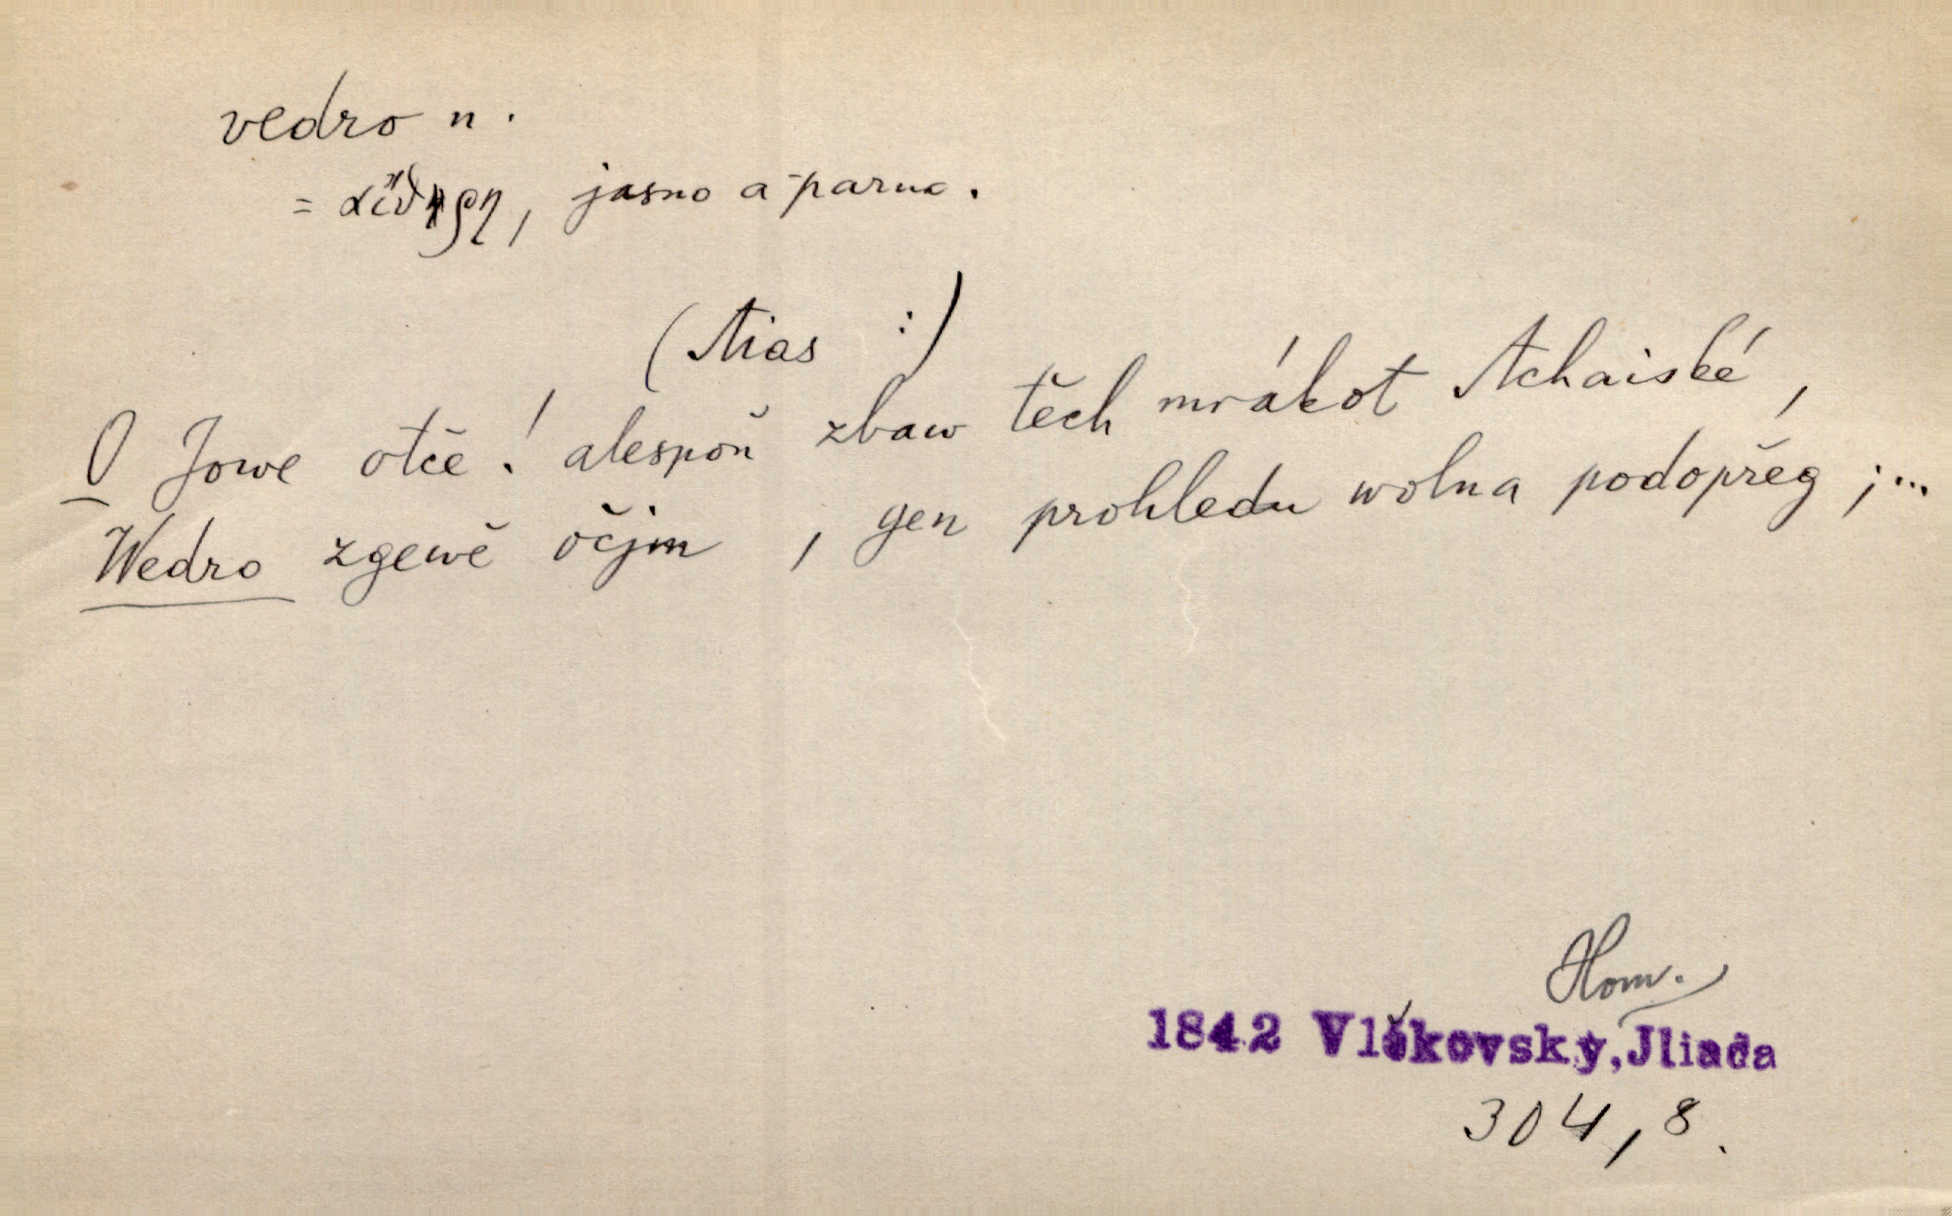 vedro n.
= αἴθρη, jasno a parno.
(Aias :)
O Jowe otče! alespoň zbaw těch mrákot Achaiské,
Wedro zgewě očjm, gen prohledu wolna podopřeg ;...
Hom.
1842 Vlčkovský, Jliada
304, 8.